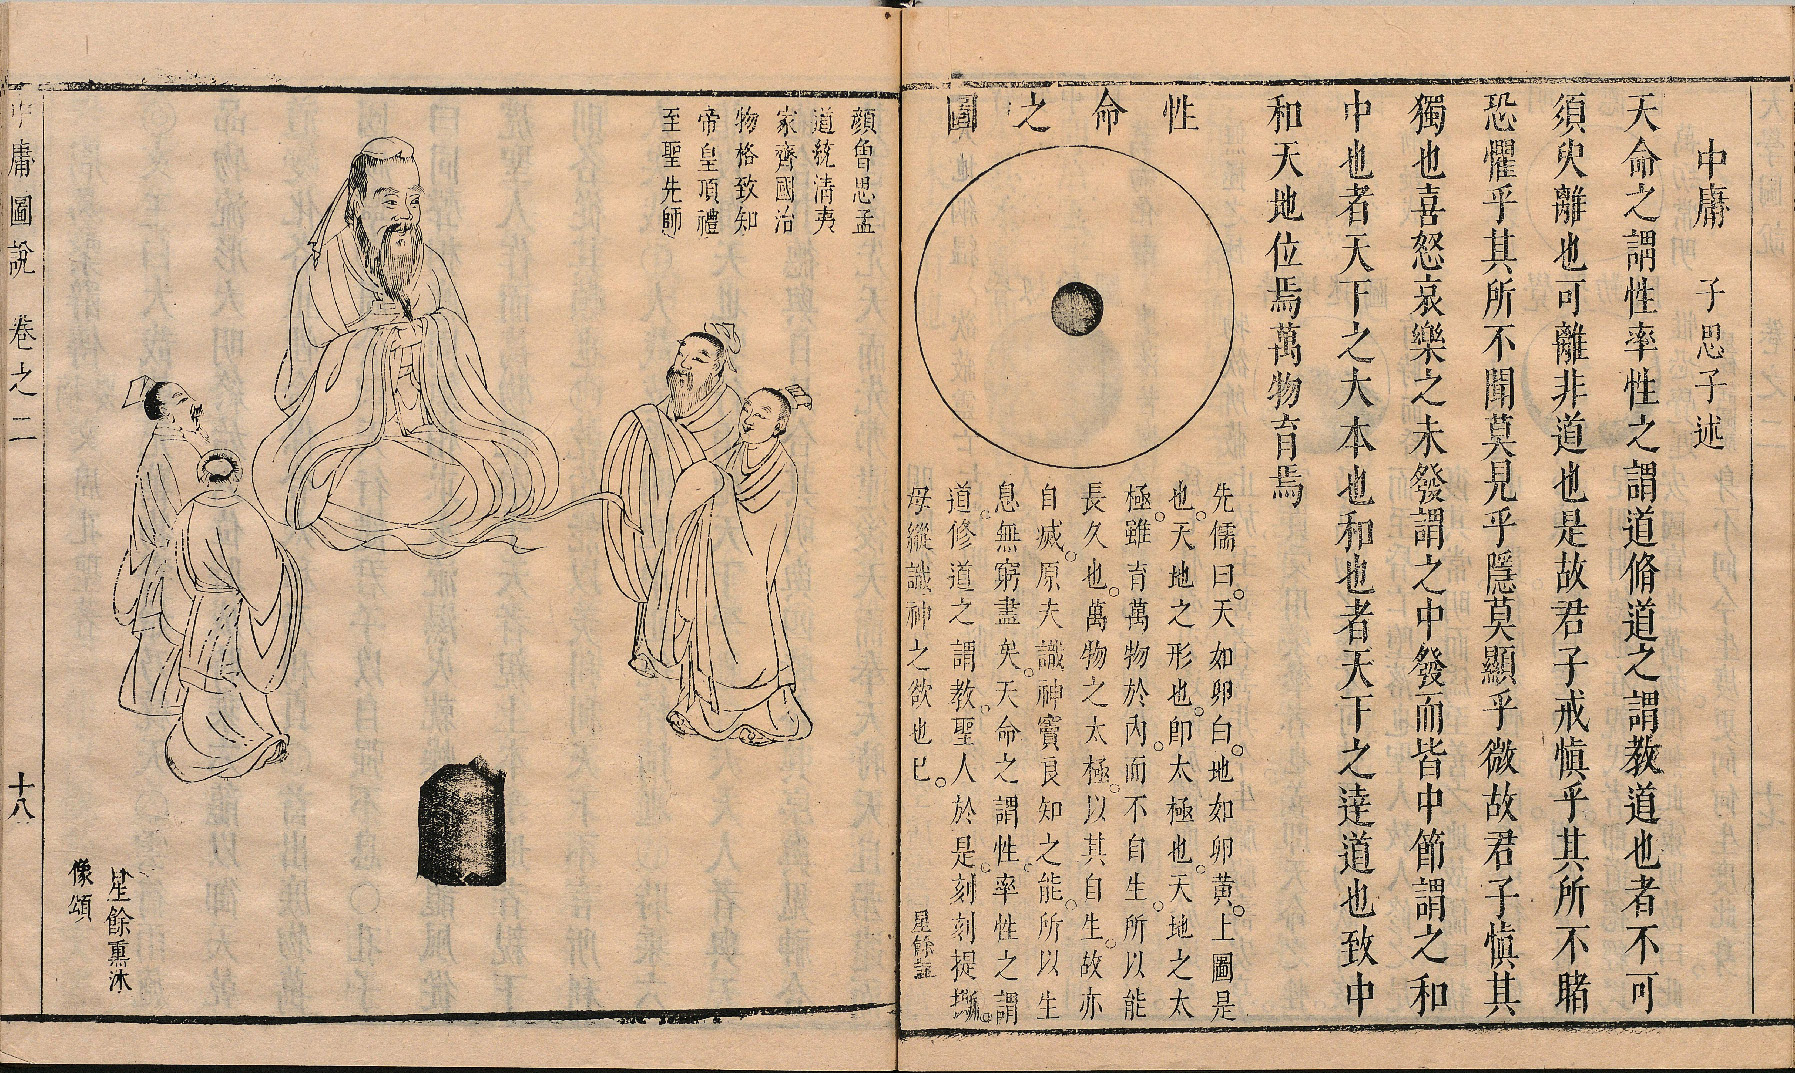 中庸　子思子述
天命之謂性率性之謂道脩道之謂教道也者不可
須臾離也可離非道也是故君子戒慎乎其所不睹
恐懼乎其所不聞莫見乎隱莫顯乎微故君子慎其
獨也喜怒哀樂之未發謂之中發而皆中節謂之和
中也者天下之大本也和也者天下之達道也致中
和天地位焉萬物育焉
性命之圖
先儒曰。天如卵白。地如卵黃。上圖是
也。天地之形也。即太極也。天地之太
極。雖育萬物於內。而不自生。所以能
長久也。萬物之太極。以其自生。故亦
自滅。原夫識神竇良知之能。所以生
息無窮盡矣。天命之謂性。率性之謂
道。修道之謂教。聖人於是。刻刻提撕。
毋縱識神之欲也已。
星餘誌
顏魯思孟
道統清夷
家齊國治
物格致知
帝皇頂禮
至聖先師
星餘熏沐
像頌
中庸圖說　卷之二　十八